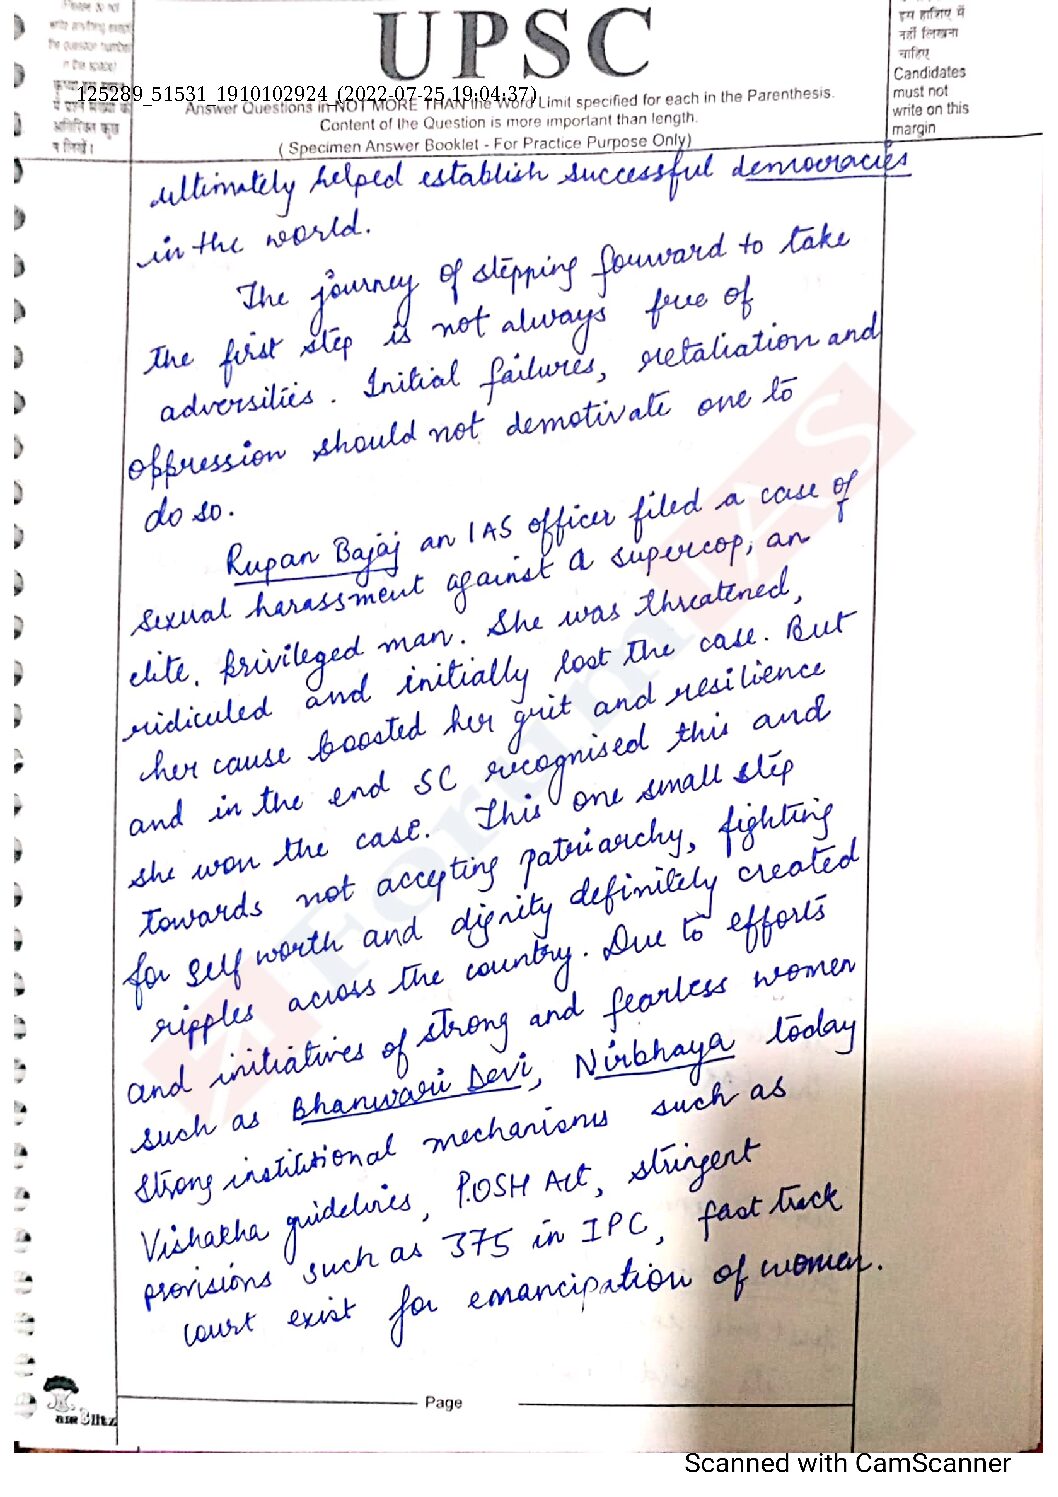 Please do not
write anything except
the question number
in this space
UPSC
इस हाशिए में
नहीं लिखना
चाहिए
Candidates
must not
write on this
margin
125289_51531_1910102924_(2022-07-25 19:04:37)
Answer Questions in NOT MORE THAN the Word Limit specified for each in the Parenthesis.
Content of the Question is more important than length.
( Specimen Answer Booklet - For Practice Purpose Only)
ultimately helped establish successful democracies
in the world.
The journey of stepping forward to take
the first step is not always free of
adversities. Initial failures, retaliation and
oppression should not demotivate one to
do so.
Rupan Bajaj an IAS officer filed a case of
sexual harassment against a supercop, an
elite, privileged man. She was threatened,
ridiculed and initially lost the case. But
her cause boosted her grit and resilience
and in the end SC recognised this and
she won the case. This one small step
towards not accepting patriarchy, fighting
for self worth and dignity definitely created
ripples across the country. Due to efforts
and initiatives of strong and fearless women
such as Bhanwari Devi, Nirbhaya today
strong institutional mechanisms such as
Vishakha guidelines, POSH Act, stringent
provisions such as 375 in IPC, fast track
court exist for emancipation of women.
Page
Forum IAS
Scanned with CamScanner